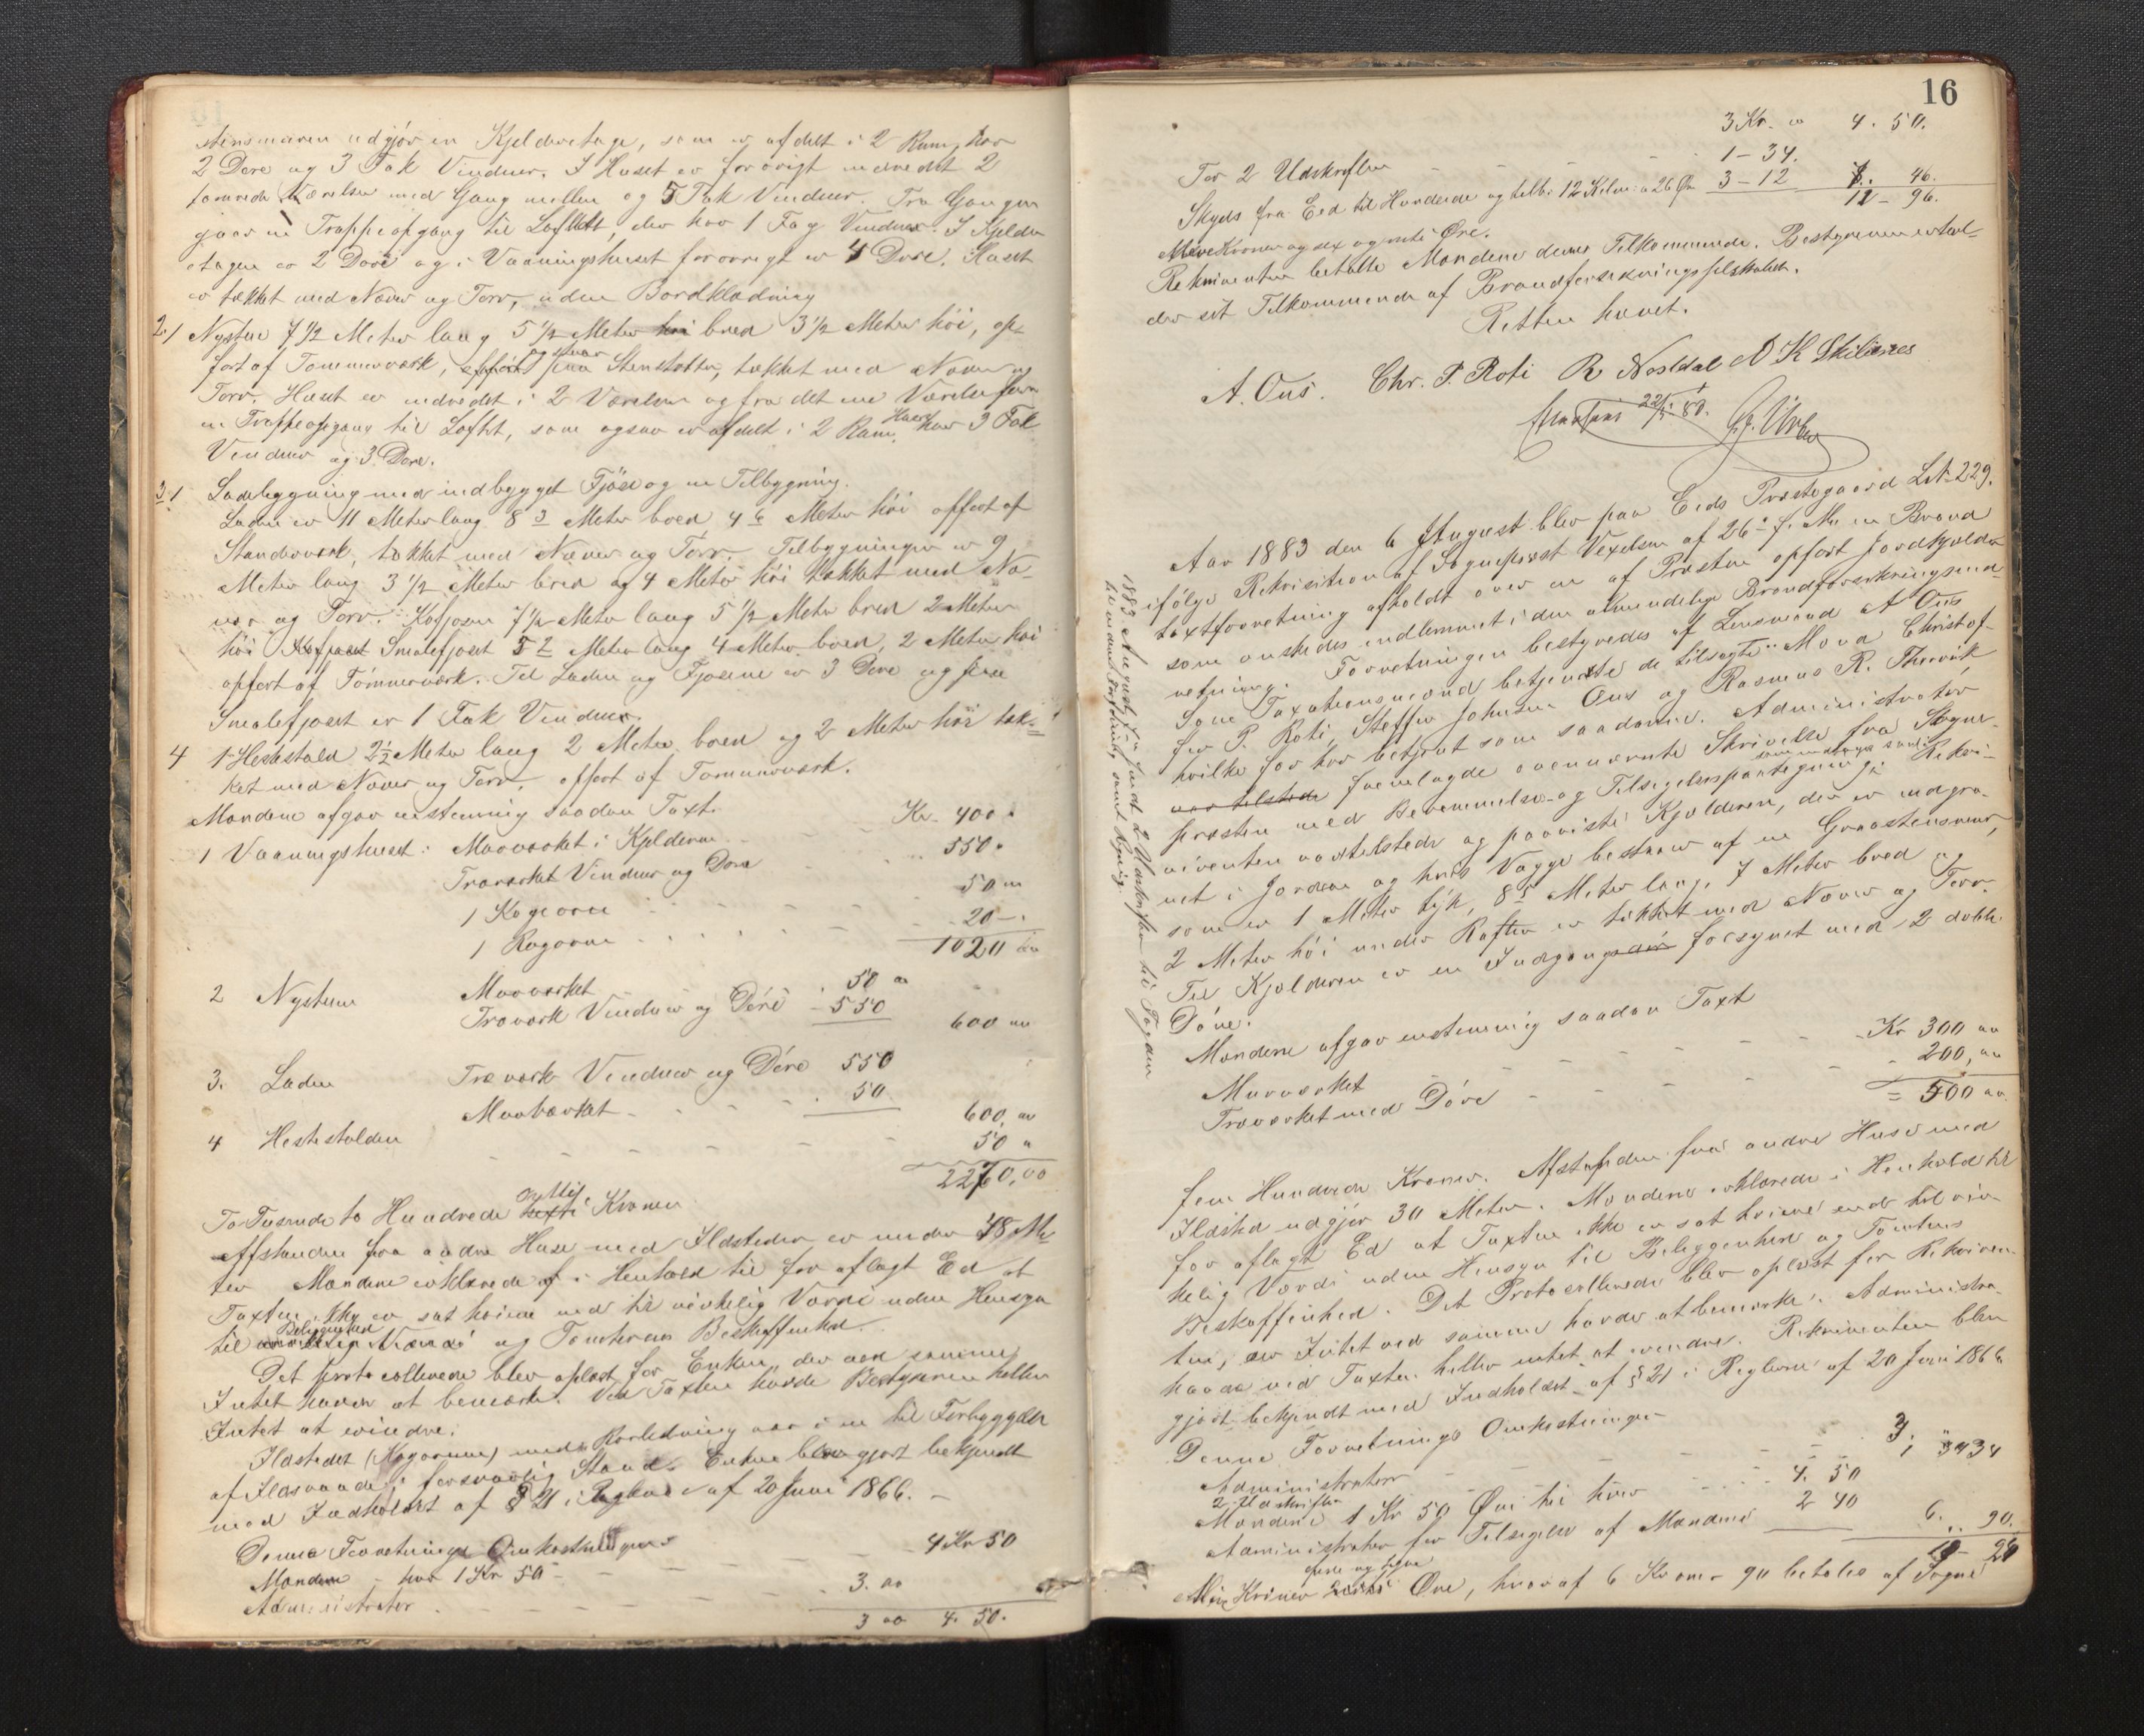 stensmuren udgjør en Kjelderetage, som er afdelt i 2 Rum, har
2 Døre og 3 Fak Vinduer. I Huset er forøvrigt indredet 2
Værelser med Gang mellem og 5 Fak Vinduer. Fra Gangen
gaar en Trappeopgang til Loftet, der har 1 Fag Vinduer. I Kjelder
etagen er 2 Døre og i Vaaningshuset forøvrigt er 4 Døre. Huset
er tækket med Næver og Torv, uden Bordklædning
2. 1 Nystue 7 1/2 Meter lang 5 1/2 Meter bred 3 1/2 Meter høi, op-
ført af Tømmerværk, og staar paa Stenstøtter, tækket med Næver og
Torv. Huset er indredet i 2 Værelser og fra det ene Værelse fører
en Trappeopgang til Loftet, som ogsaa er afdelt i 2 Rum. Huset har 3 Fak
Vinduer og 3 Døre.
3. 1 Ladebygning med indbygget Fjøse og en Tilbygning.
Laden er 11 Meter lang 8 3 Meter bred 4 6 Meter høi opført af
Standværk, tækket med Næver og Torv. Tilbygningen er 9
Meter lang 3 1/2 Meter bred og 4 Meter høi tækket med Næ-
ver og Torv. Kofjøsen 7 1/2 Meter lang 5 1/2 Meter bred 2 Meter
høi Smalefjøset 5 2 Meter lang 4 Meter bred, 2 Meter høi
opført af Tømmerværk. Til Laden og Fjøsene er 3 Døre og paa
Smalefjøset er 1 Fak Vinduer.
4 1 Hestestald 2 1/2 Meter lang 2 Meter bred og 2 Meter høi tæk-
ket med Næver og Torv, opført af Tømmerværk.
Mændene afgav enstemmig saadan Taxt.
1 Vaaningshuset: Muurværket i Kjelderen Kr. 400 "
Træværket Vinduer og Døre 550 "
1 Kogeovn 50 "
1 Kogeovn 20 -
1020 "
2 Nystuen Muurværket 50 "
Træværk Vinduer og Døre - 550
600 "
3. Laden Træværk Vinduer og Døre 550
Muurværket - 50
600, "
4 Hestestalden 50 "
2270,00
To Tusende to Hundrede sytti Kroner.
Afstanden fra andre Huse med Ildsteder er under 48 Me-
ter Mændene erklærede i Henhold til før aflagt Ed at
Taxten ikke er sat høiere end til virkelig Værdi uden Hensyn
til Beliggenhed og Tomternes Beskaffenhed.
Det protocollerede blev oplæst for Enken, der ved samme
Intet havde at bemærke. Ved Taxten havde Bestyreren heller
Intet at erindre.
Ildstedet (Kogeovnen) med Rørledning var i en til Forbyggelse
af Ildsvaade forsvarlig Stand. Enken blev gjort bekjendt
med Indholdet af § 21 i Reglerne af 20 Juni 1866. -
Denne Forretnings Omkostninger
Mændene - hver 1 Kr 50 - 4 Kr 50
Administrator 3. "
3 " 4. 50.
16
3 Kr. " 4. 50.
For 2 Udskrifter 1 - 34.
Skyds fra Eid til Hunderde og tilb. 12 Kilm. a 26 Øre 3 - 12 8. 46.
12 - 96.
Kroner og sex og niti Øre.
Rekvirenten betalte Mændene deres Tilkommende. Bestyreren
der sit Tilkommende af Brandforsikringsselskabet.
Retten hævet.
A. Ous. Chr. P. Roti R Nosdal
22/1 80.
Aar 1883 den 6 August blev paa Eids Præstegaard L.N. 229.
ifølge Rekvisition af Sognepræst Vexelsen af 26 f. M. en Brand
taxtforretning afholdt over en af Præsten opført Jordkjelder
som ønskedes indlemmet i den almindelige Brandforsikringsind-
retning. Forretningen bestyredes af Lensmand A Ous
Som Taxationsmænd betjente de tilsagte Mænd Christof-
fer P. Roti, Steffen Johnsen Ous og Rasmus R. Thorvik
hvilke før har betjent som saadanne. Administrator
fremlagde ovennævnte Skrivelse fra Sogne-
præsten med Berammelse- og Tilsigelsespaategning. Rekvi-
renten var tilstede og paaviste Kjelderen, der er nedgra-
vet i Jorden og hvis Vægge bestaar af en Graastensmur,
som er 1 Meter tyk, 8 5 Meter lang, 7 Meter bred og
2 Meter høi under Rafter er tækket med Næver og Torv.
Til Kjelderen er en Indgang forsynet med 2 dobb.
Døre.
Mændene afgav enstemmig saadan Taxt
Muurværket Kr 300 "
Træværket med Døre 200, "
= 500 "
fem Hundrede Kroner. Afstanden fra andre Huse med
Ildsted udgjør 30 Meter. Mændene erklærede i Henhold til
før aflagt Ed at Taxten ikke er sat høiere end til vir-
kelig Værdi uden Hensyn til Beliggenhed og Tomtens
Beskaffenhed. Det Protocollerede blev oplæst for Rekviren-
ten, der Intet ved samme havde at bemærke. Administra-
havde ved Taxten heller intet at erindre. Rekvirenten blev
gjort bekjendt med Indholdet af § 21 i Reglerne af 20 Juni 1866
Denne Forretnings Omkostninger
Administrator 3, "
2 Udskrifter 1 34
Mændene 1 Kr 50 Øre til hver 4. 50
Administrator for Tilsigelse af Mændene 2 40
6. 90.
Kroner Øre, hvoraf 6 Kroner 90 betales af Sogne
1883 August 2 Udskrifter til Fogden